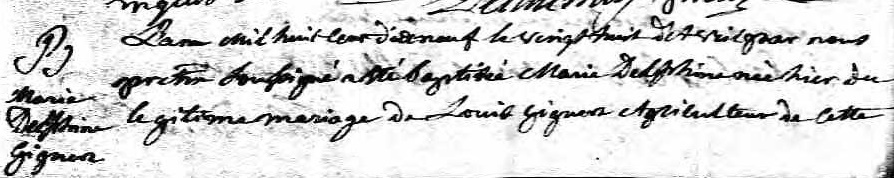 B
Marie
Delphine
Gignerr
L'an mil huit cent dix neuf le vingt huit d'avril par nous
pretre soussigné a été baptisée Marie Delphine née hier du
legitime mariage de Louis Gignerr Agriculteur de cette